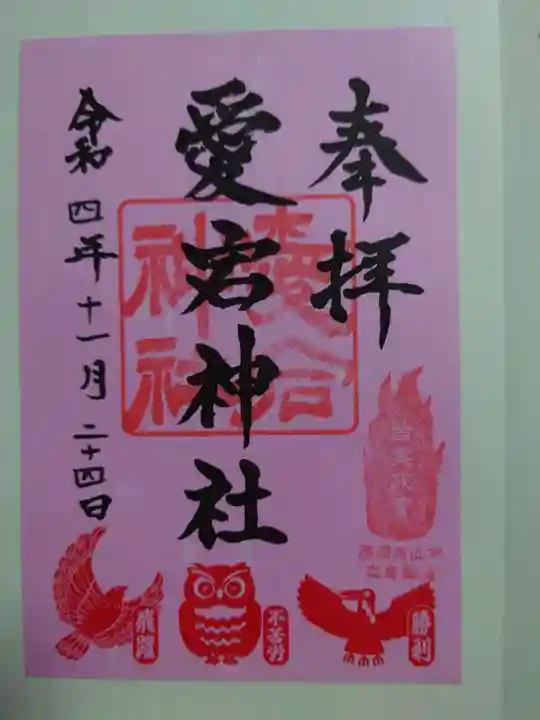 奉拝
愛宕神社
令和四年十一月二十四日
愛宕
神社
勝利
不苦労
飛躍